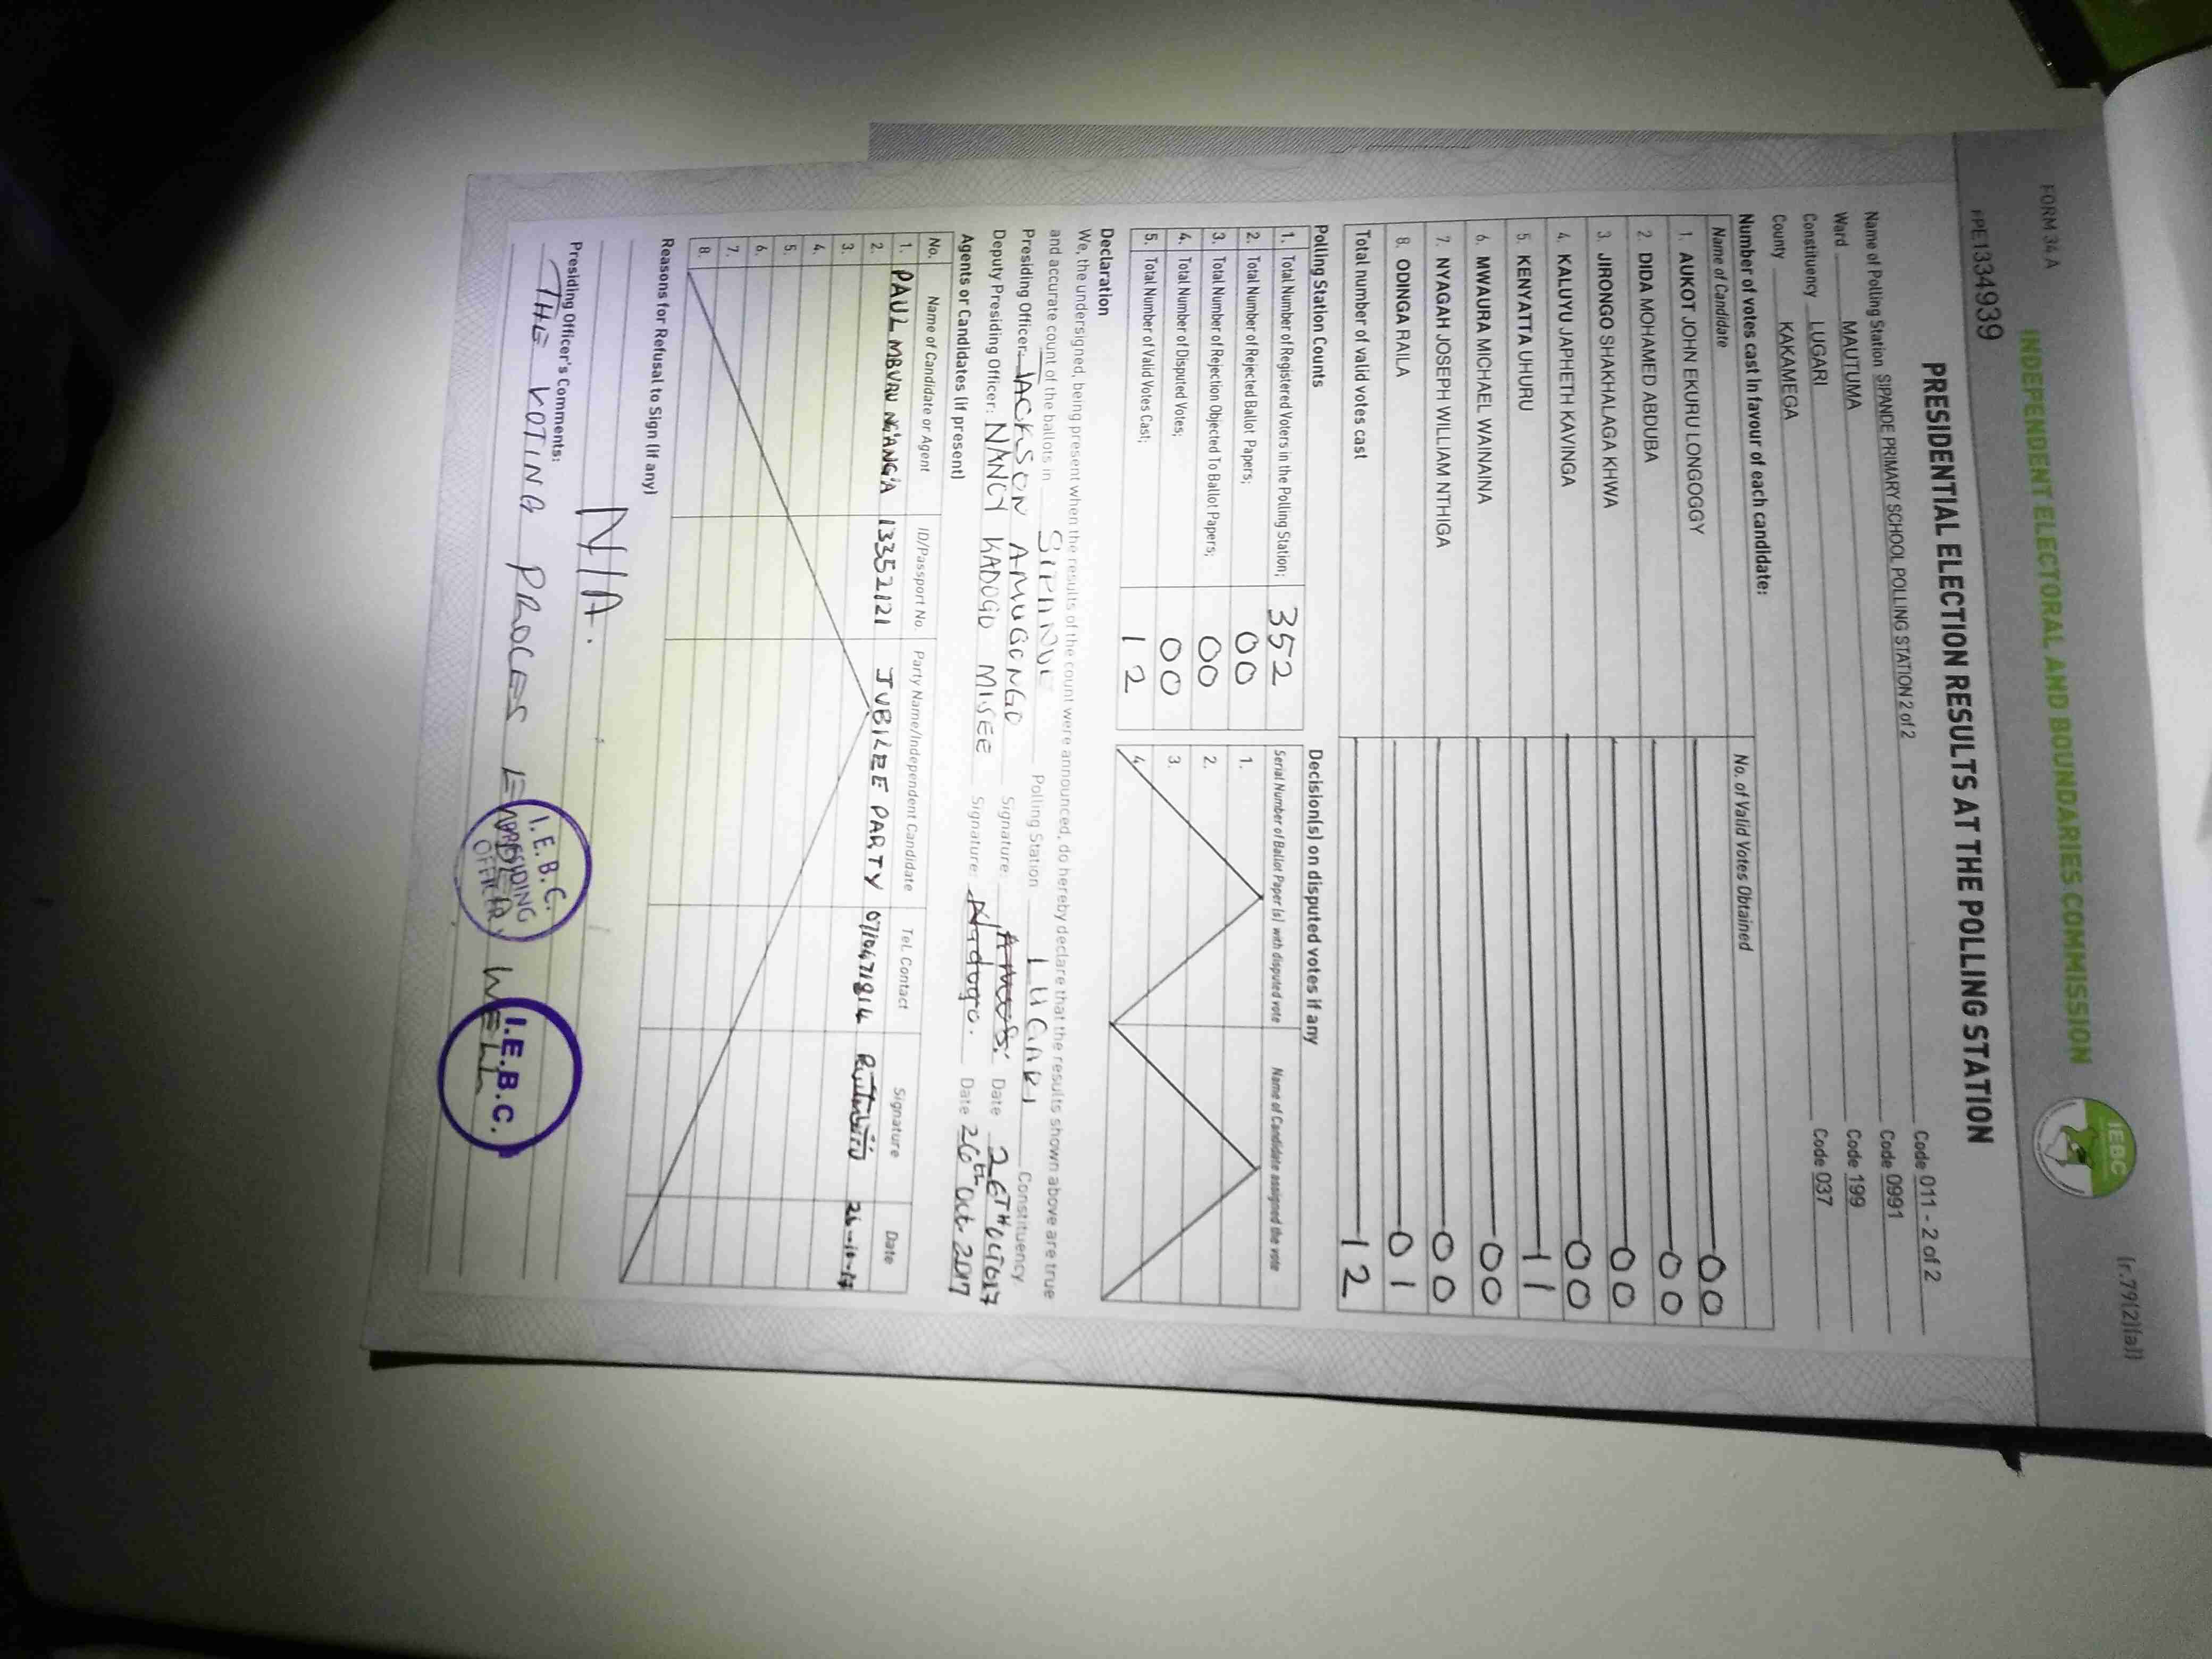 FORM 34A
(r.79(2)(a))
INDEPENDENT ELECTORAL AND BOUNDARIES COMMISSION
IEBC
PPE1334939
PRESIDENTIAL ELECTION RESULTS AT THE POLLING STATION
Name of Polling Station SIPANDE PRIMARY SCHOOL POLLING STATION 2 of 2 Code 011 - 2 of 2
Ward MAUTUMA Code 0991
Constituency LUGARI Code 199
County KAKAMEGA Code 037
Number of votes cast in favour of each candidate:
Name of Candidate No. of Valid Votes Obtained
1. AUKOT JOHN EKURU LONGOGGY 00
2. DIDA MOHAMED ABDUBA 00
3. JIRONGO SHAKHALAGA KHWA 00
4. KALUYU JAPHETH KAVINGA 00
5. KENYATTA UHURU 11
6. MWAURA MICHAEL WAINAINA 00
7. NYAGAH JOSEPH WILLIAM NTHIGA 00
8. ODINGA RAILA 01
Total number of valid votes cast 12
Polling Station Counts
1. Total Number of Registered Voters in the Polling Station; 352
2. Total Number of Rejected Ballot Papers; 00
3. Total Number of Rejection Objected To Ballot Papers; 00
4. Total Number of Disputed Votes; 00
5. Total Number of Valid Votes Cast; 12
Decision(s) on disputed votes if any
Serial Number of Ballot Paper (s) with disputed vote Name of Candidate assigned the vote
1.
2.
3.
4.
Declaration
We, the undersigned, being present when the results of the count were announced, do hereby declare that the results shown above are true
and accurate count of the ballots in SIPANDE Polling Station LUGARI Constituency.
Presiding Officer: JACKSON AMUGONGO Signature: Date 26TH OCT 2017
Deputy Presiding Officer: NANCY KADOGO MISEE Signature: Kadogo. Date 26th Oct. 2017
Agents or Candidates (if present)
No. Name of Candidate or Agent ID/Passport No. Party Name/Independent Candidate Tel. Contact Signature Date
1. PAUL MBURU NG'ANG'A 13352121 JUBILEE PARTY 0710471814 26-10-17
2.
3.
4.
5.
6.
7.
8.
Reasons for Refusal to Sign (if any)
N/A.
Presiding Officer's Comments:
THE VOTING PROCES ENDED WELL
I.E.B.C. PRESIDING OFFICER
I.E.B.C.